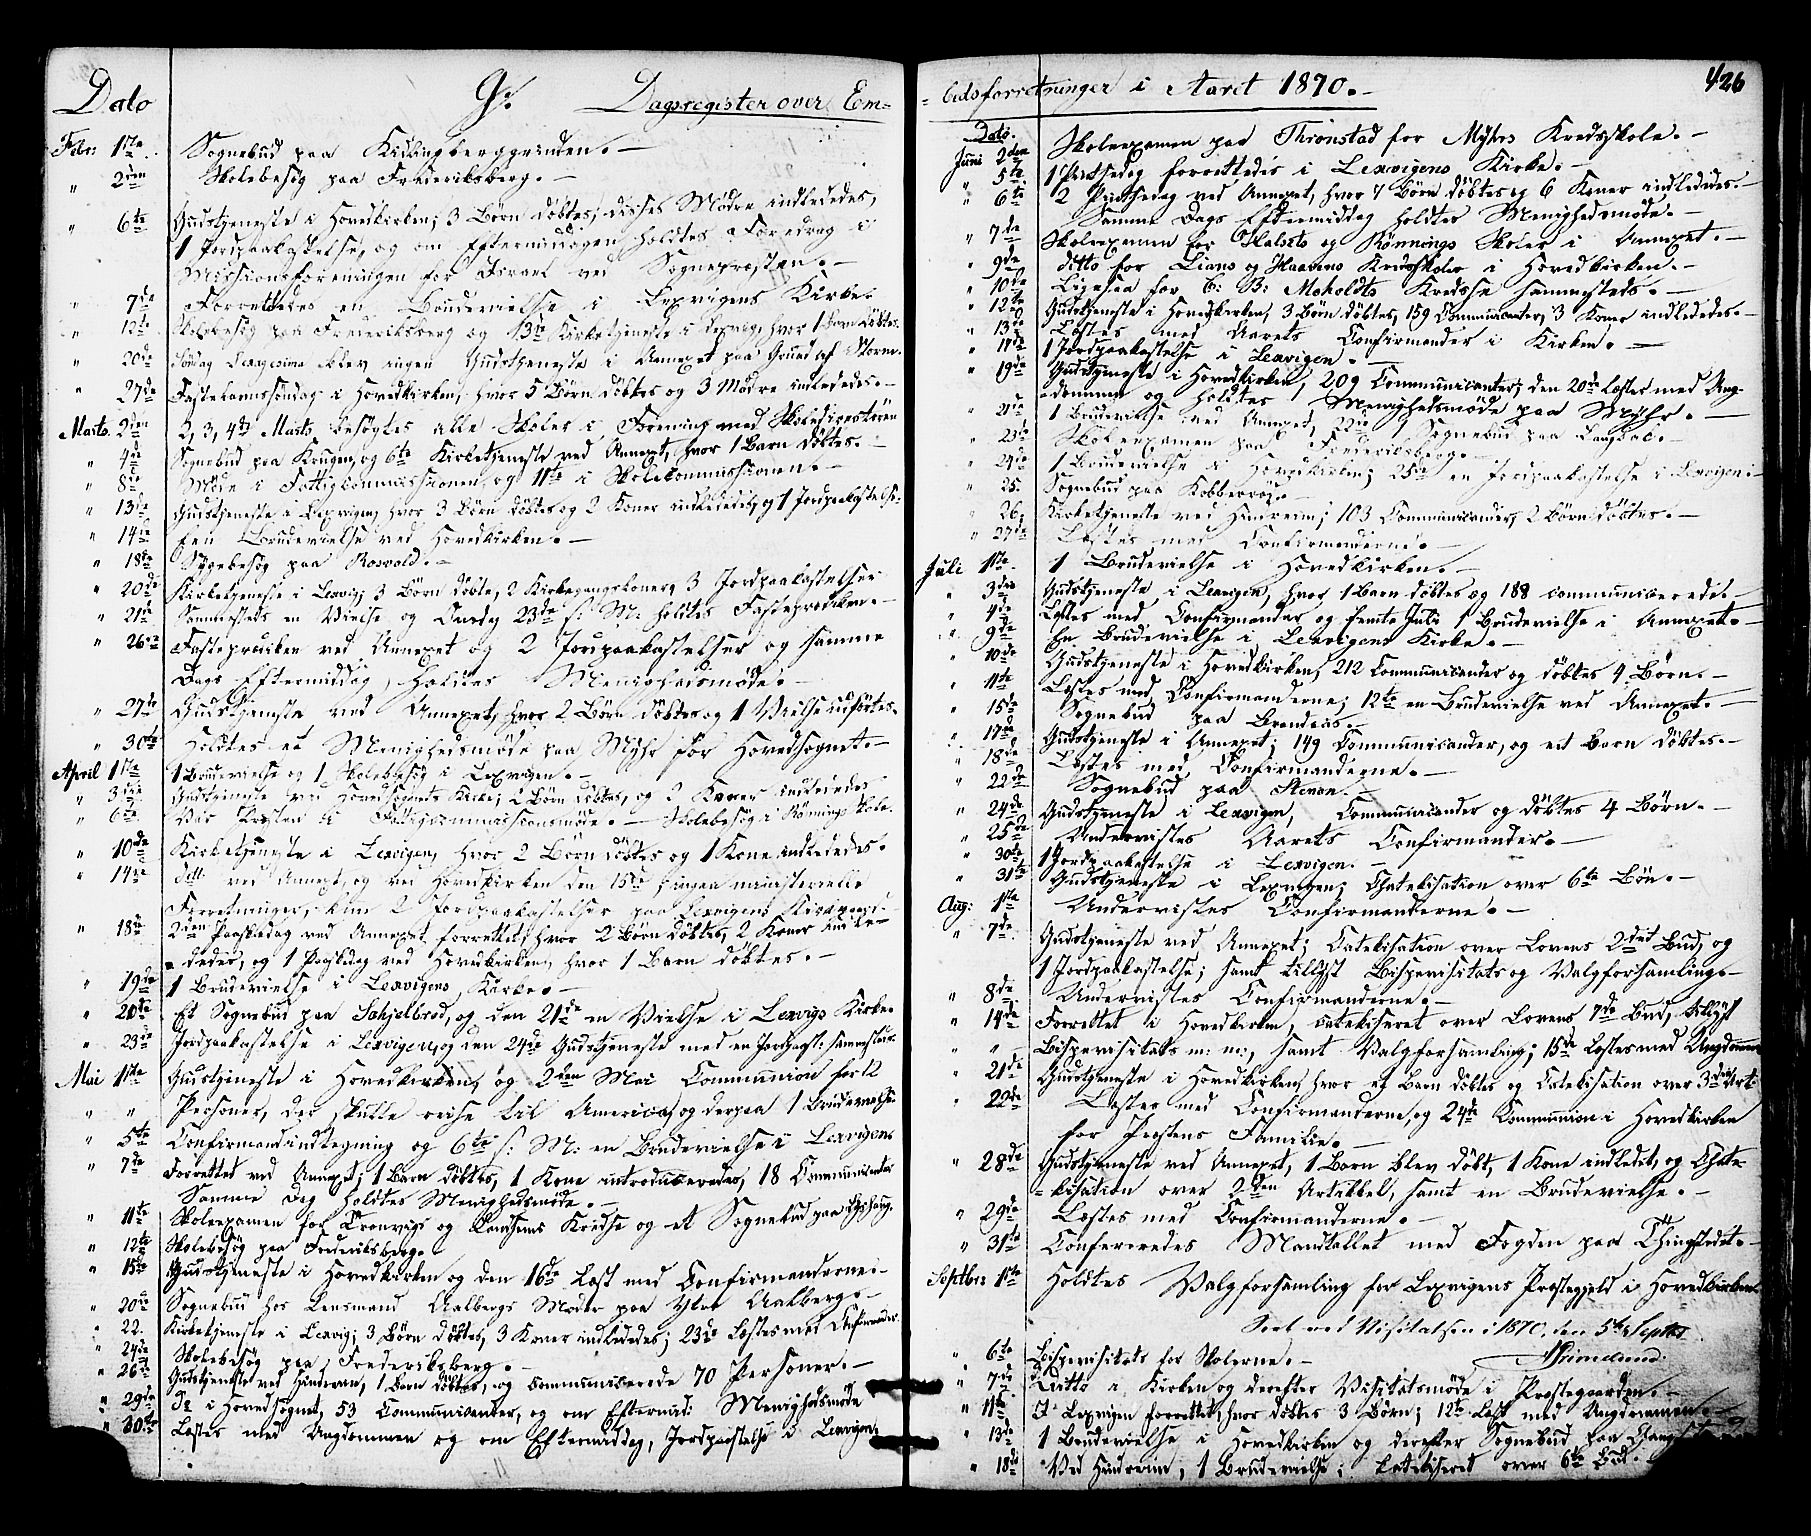 Dato G. Dagsregister over Em-
Febr: 1ste Sognebud paa Kidlingberggrinden.—
" 2den Skolebesøg paa Frederiksberg.—
" 6te Gudstjeneste i Hovedkirken; 3 Børn døbtes; disses Mødre indlededes,
1 Jordpaakastelse, og om Eftermiddagen holdtes Foredrag i
Missionsforeningen for Israel ved Sognepresten.—
" 7de Forrettedes en Brudevielse i Lexvigens Kirke.
" 12te Skolebesøg paa Frederiksberg og 13de Kirketjeneste i Lexvig, hvor 1 Barn døbtes.
" 20de Søndag Sexagesima blev ingen Gudstjeneste i Annexet paa Grund af Storm.
" 27de Fastelavnssøndag i Hovedkirken, hvor 5 Børn døbtes og 3 Mødre indlededes.—
Marts. 2den 2, 3, 4de Marts besøgtes alle Skoler i Forening med Skoledirecteuren
" 4de Sognebud paa Krogen, og 6te Kirketjeneste ved Annexet, hvor 1 Barn døbtes.—
" 8de Møde i Fattigkommissionen, og 11te i Skolekommissionen.—
" 13de Gudstjeneste i Lexvigen, hvor 3 Børn døbtes og 2 Koner indlededes, og 1 Jordpaakastelse.
" 14de Een Brudevielse ved Hovedkirken.—
" 18de Sygebesøg paa Rosvold.—
" 20de Kirketjeneste i Lexvig; 3 Børn døbte, 2 Kirkegangskoner, 3 Jordpaakastelser
" 21de Sammesteds en Vielse og Onsdag 23de s: M: holdtes Fasteprædiken.—
" 26de Fasteprædiken ved Annexet og 2 Jordpaakastelser og samme
Dags Eftermiddag holdtes Menighedsmøde.—
" 27de Gudstjeneste ved Annexet, hvor 2 Børn døbtes og 1 Vielse udførtes.
" 30te Holdtes et Menighedsmøde paa Myhr for Hovedsognet.—
April 1ste 1 Brudevielse og 1 Skolebesøg i Lexvigen.—
" 3die Gudstjeneste ved Hovedsognets Kirke; 2 Børn døbtes, og 2 Koner indlededes
" 6te Var Presten i Fattigcommissionsmøde.— Skolebesøg i Rønnings Skole.
" 10de Kirketjeneste i Lexvigen, hvor 2 Børn døbtes og 1 Kone indlededes.
" 14de Ditto ved Annexet, og ved Hovedkirken den 15de; ingen ministerielle
Forretninger, kun 2 Jordpaakastelser paa Lexvigens Kirkegaard.
" 18de 2den Paaskedag ved Annexet forrettet, hvor 2 Børn døbtes, 2 Koner indle-
dedes, og 1 Paaskedag ved Hovedkirken, hvor 1 Barn døbtes.—
" 19de 1 Brudevielse i Lexvigens Kirke.—
" 20de Et Sognebud paa Schjelbred, og den 21de en Vielse i Lexvigs Kirke
" 23de Jordpaakastelse i Lexvigen, og den 24de Gudstjeneste med en Jordpaak: sammesteds.
Mai 1ste Gudstjeneste i Hovedkirken, og 2den Mai Communion for 12
" " Personer, der skulle reise til America, og derpaa 1 Brudevielse.
" 5te Confirmandindtegning og 6te s: M: en Brudevielse i Lexvigens
" 7de Forrettet ved Annexet; 1 Barn døbtes, 1 Kone introduceredes, 18 Communicanter
Samme Dag holdtes Menighedsmøde.—
" 11te Skoleexamen for Tronvigs og Kredse og et Sognebud paa
" 12te Skolebesøg paa Frederiksberg.
" 15de Gudstjeneste i Hovedkirken og den 16de Læst med Confirmanderne.—
" 20de Sognebud hos Lensmand Aalbergs Moder paa Ytre Aalberg.—
" 22. Kirketjeneste i Lexvig; 3 Børn døbtes, 3 Koner indlededes; 23de Læstes med Confirmander.
" 24de Skolebesøg paa Frederiksberg.—
" 26de Gudstjeneste ved Hindrem, 1 Barn døbtes, og communicerede 70 Personer.—
" 29de I Hovedsognet, 53 Communicanter, og om Eftermid: Menighedsmøde
" 30te Læstes med Ungdommen og om Eftermiddag, Jordpaakastelse i Lexvigen.
bedsforretninger i Aaret 1870.— 426
Dato.
Juni 2den Skoleexamen paa Thrønstad for Myhrs Kredsskole.—
" 5te 1 Pintsedag forrettedes i Lexvigens Kirke.—
" 6te 2 Pintsedag ved Annexet, hvor 7 Børn døbtes og 6 Koner indlededes.—
Samme Dags Eftermiddag holdtes Menighedsmøde.—
" 7de Skoleexamen for Halsets og Rønnings Skoler i Annexet.—
" 9de ditto for Lians og Haavens Kredsskoler i Hovedkirken.—
" 10de Ligesaa for C: B: Moholdts Kredse sammesteds.—
" 12te Gudstjeneste i Hovedkirken, 3 Børn døbtes, 159 Communicanter, 3 Koner indlededes.—
" 13de Læstes med Aarets Confirmander i Kirken.—
" 17de 1 Jordpaakastelse i Lexvigen.—
" 19de Gudstjeneste i Hovedkirken, 209 Communicanter; den 20de Læstes med Ung-
dommen og holdtes Menighedsmøde paa Myhr.—
" 21de 1 Brudevielse ved Annexet, 22de 1 Sognebud paa
" 23de Skoleexamen paa Frederiksberg.—
" 24de 1 Brudevielse i Hovedkirken; 25de en Jordpaakastelse i Lexvigen.—
" 25. Sognebud paa Kobberrøe.—
" 26. Kirketjeneste ved Hindreim; 103 Communicander, 2 Børn døbtes.—
" 27de Læstes med Confirmanderne.—
Juli 1ste 1 Brudevielse i Hovedkirken.—
" 3die Gudstjeneste i Lexvigen, hvor 1 Barn døbtes og 188 communicerede.—
" 4de Læstes med Confirmander og femte Juli 1 Brudevielse i Annexet.—
" 9de En Brudevielse i Lexvigens Kirke.—
" 10de Gudstjeneste i Hovedkirken, 212 Communicander og døbtes 4 Børn.—
" 11te Læstes med Confirmanderne; 12te en Brudevielse ved Annexet.—
" 15de Sognebud paa Brandaas.—
" 17de Gudstjeneste i Annexet; 149 Communicander, og eet Barn døbtes.—
" 18de Læstes med Confirmanderne.—
" 22de Sognebud paa Stenen.—
" 24de Gudstjeneste i Lexvigen, Communicander og døbtes 4 Børn.—
" 25de Undervistes Aarets Confirmander.—
" 30te 1 Jordpaakastelse i Lexvigen.—
" 31te Gudstjeneste i Lexvigen; Chatekisation over 6te Bøn.—
Aug: 1ste Undervistes Confirmanderne.—
" 7de Gudstjeneste ved Annexet; Catekisation over Lovens 2det Bud, og
1 Jordpaakastelse; samt tillyst Bispevisitats og Valgforsamling.—
" 8de Undervistes Confirmanderne.—
" 14de Forrettet i Hovedkirken, catekiseret over Lovens 7de Bud, tillyst
" " Bispevisitats m: m:, samt Valgforsamling; 15de Læstes med Ungdommen
" 21de Gudstjeneste i Hovedkirken, hvor et Barn døbtes og Catekisation over 3die Art:
" 22de Læstes med Confirmanderne, og 24de Kommunion i Hovedkirken
for Prestens Familie.—
" 28de Gudstjeneste ved Annexet, 1 Barn blev døbt, 1 Kone indledet, og Chate-
kisation over 2den Artikkel, samt en Brudevielse.—
" 29de Læstes med Confirmanderne.—
" 31te Confereredes Mandtallet med Fogden paa Thingstedet.—
Septbr: 1ste Holdtes Valgforsamling for Lexvigens Prestegjeld i Hovedkirken.
Seet ved Visitatsen i 1870, den 5te Septbr
Grimelund.
" 6te Bispevisitats for Skolerne.—
" 7de Ditto i Kirken og derefter Visitatsmøde i Prestegaarden.—
" 11te I Lexvigen forrettet, hvor døbtes 3 Børn; 12te Læst med Ungdommen.—
" 13de 1 Brudevielse i Hovedkirken og derefter Sognebud paa
" 18de Ved Hindreim, 1 Brudevielse; katekiseret over 6te Bud.